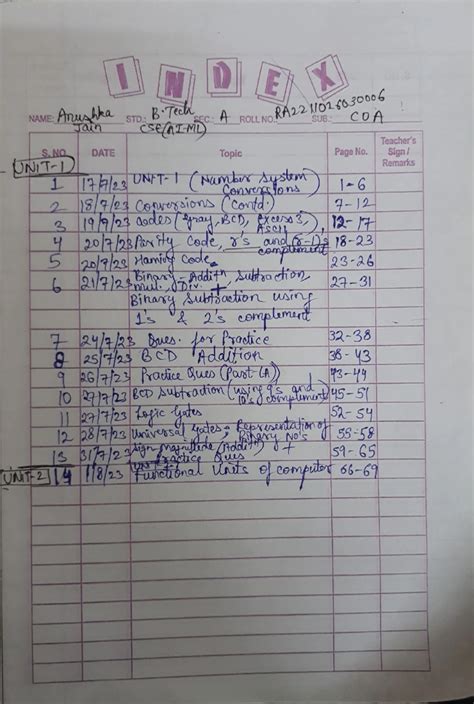 INDEX
NAME: Anushka Jain STD.: B.Tech CSE(AI-ML) SEC.: A ROLL NO.: RA2211026030006 SUB.: COA
S. NO. DATE Topic Page No. Teacher's Sign / Remarks
UNIT-1
1 17/7/23 UNIT-1 (Number System Conversions) 1-6
2 18/7/23 Conversions (Contd.) 7-12
3 19/7/23 Codes (Gray, BCD, Excess 3, ASCII) 12-17
4 20/7/23 Parity Code, r's and (r-1)'s complement 18-23
5 20/7/23 Haming Code 23-26
6 21/7/23 Binary - Addith, Subtraction, 27-31
mul., Div. +
Binary Subtraction using
1's & 2's complement
7 24/7/23 Ques. for Practice 32-38
8 25/7/23 BCD Addition 38-43
9 26/7/23 Practice Ques (Part-A) 43-44
10 27/7/23 BCD Subtraction (using 9's and 10's complement) 45-51
11 27/7/23 Logic Gates 52-54
12 28/7/23 Universal Gates + Representation of Binary No's 55-58
13 31/7/23 Sign Magnitude (Addith) + Practice Ques 59-65
UNIT-2 14 1/8/23 Functional Units of computer 66-69